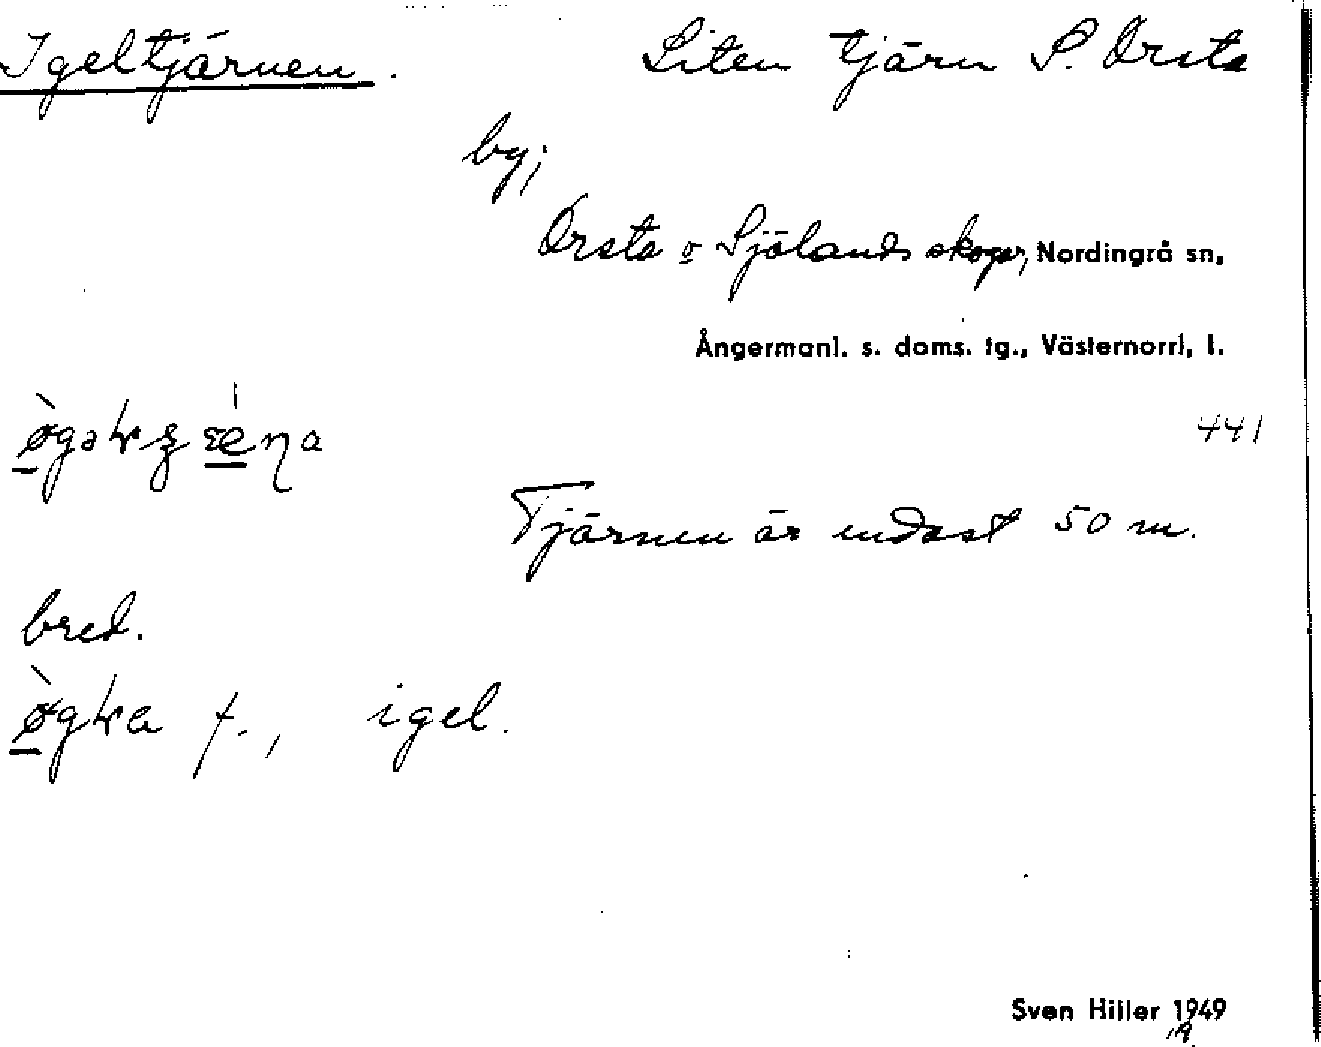 Igeltjärnen. Liten tjärn S. Orsta
by;
Orsta o Sjölands skogar, Nordingrå sn,
Ångermanl. s. doms. tg., Västernorrl, l.
441
Tjärnen är endast 50 m.
bred.
f., igel.
Sven Hiller 1949